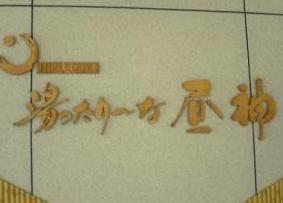 湯ったり〜な昼神